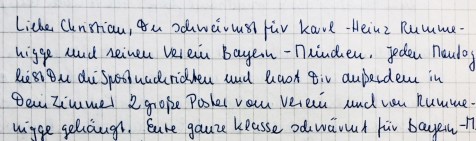 Lieber Christian, Du schwärmst für Karl-Heinz Rumme-
nigge und seinen Verein Bayern-München. Jeden Montag
liest Du die Sportnachrichten und hast Dir außerdem in
Dein Zimmer 2 große Poster vom Verein und von Rumme-
nigge gehängt. Eure ganze Klasse schwärmt für Bayern-M